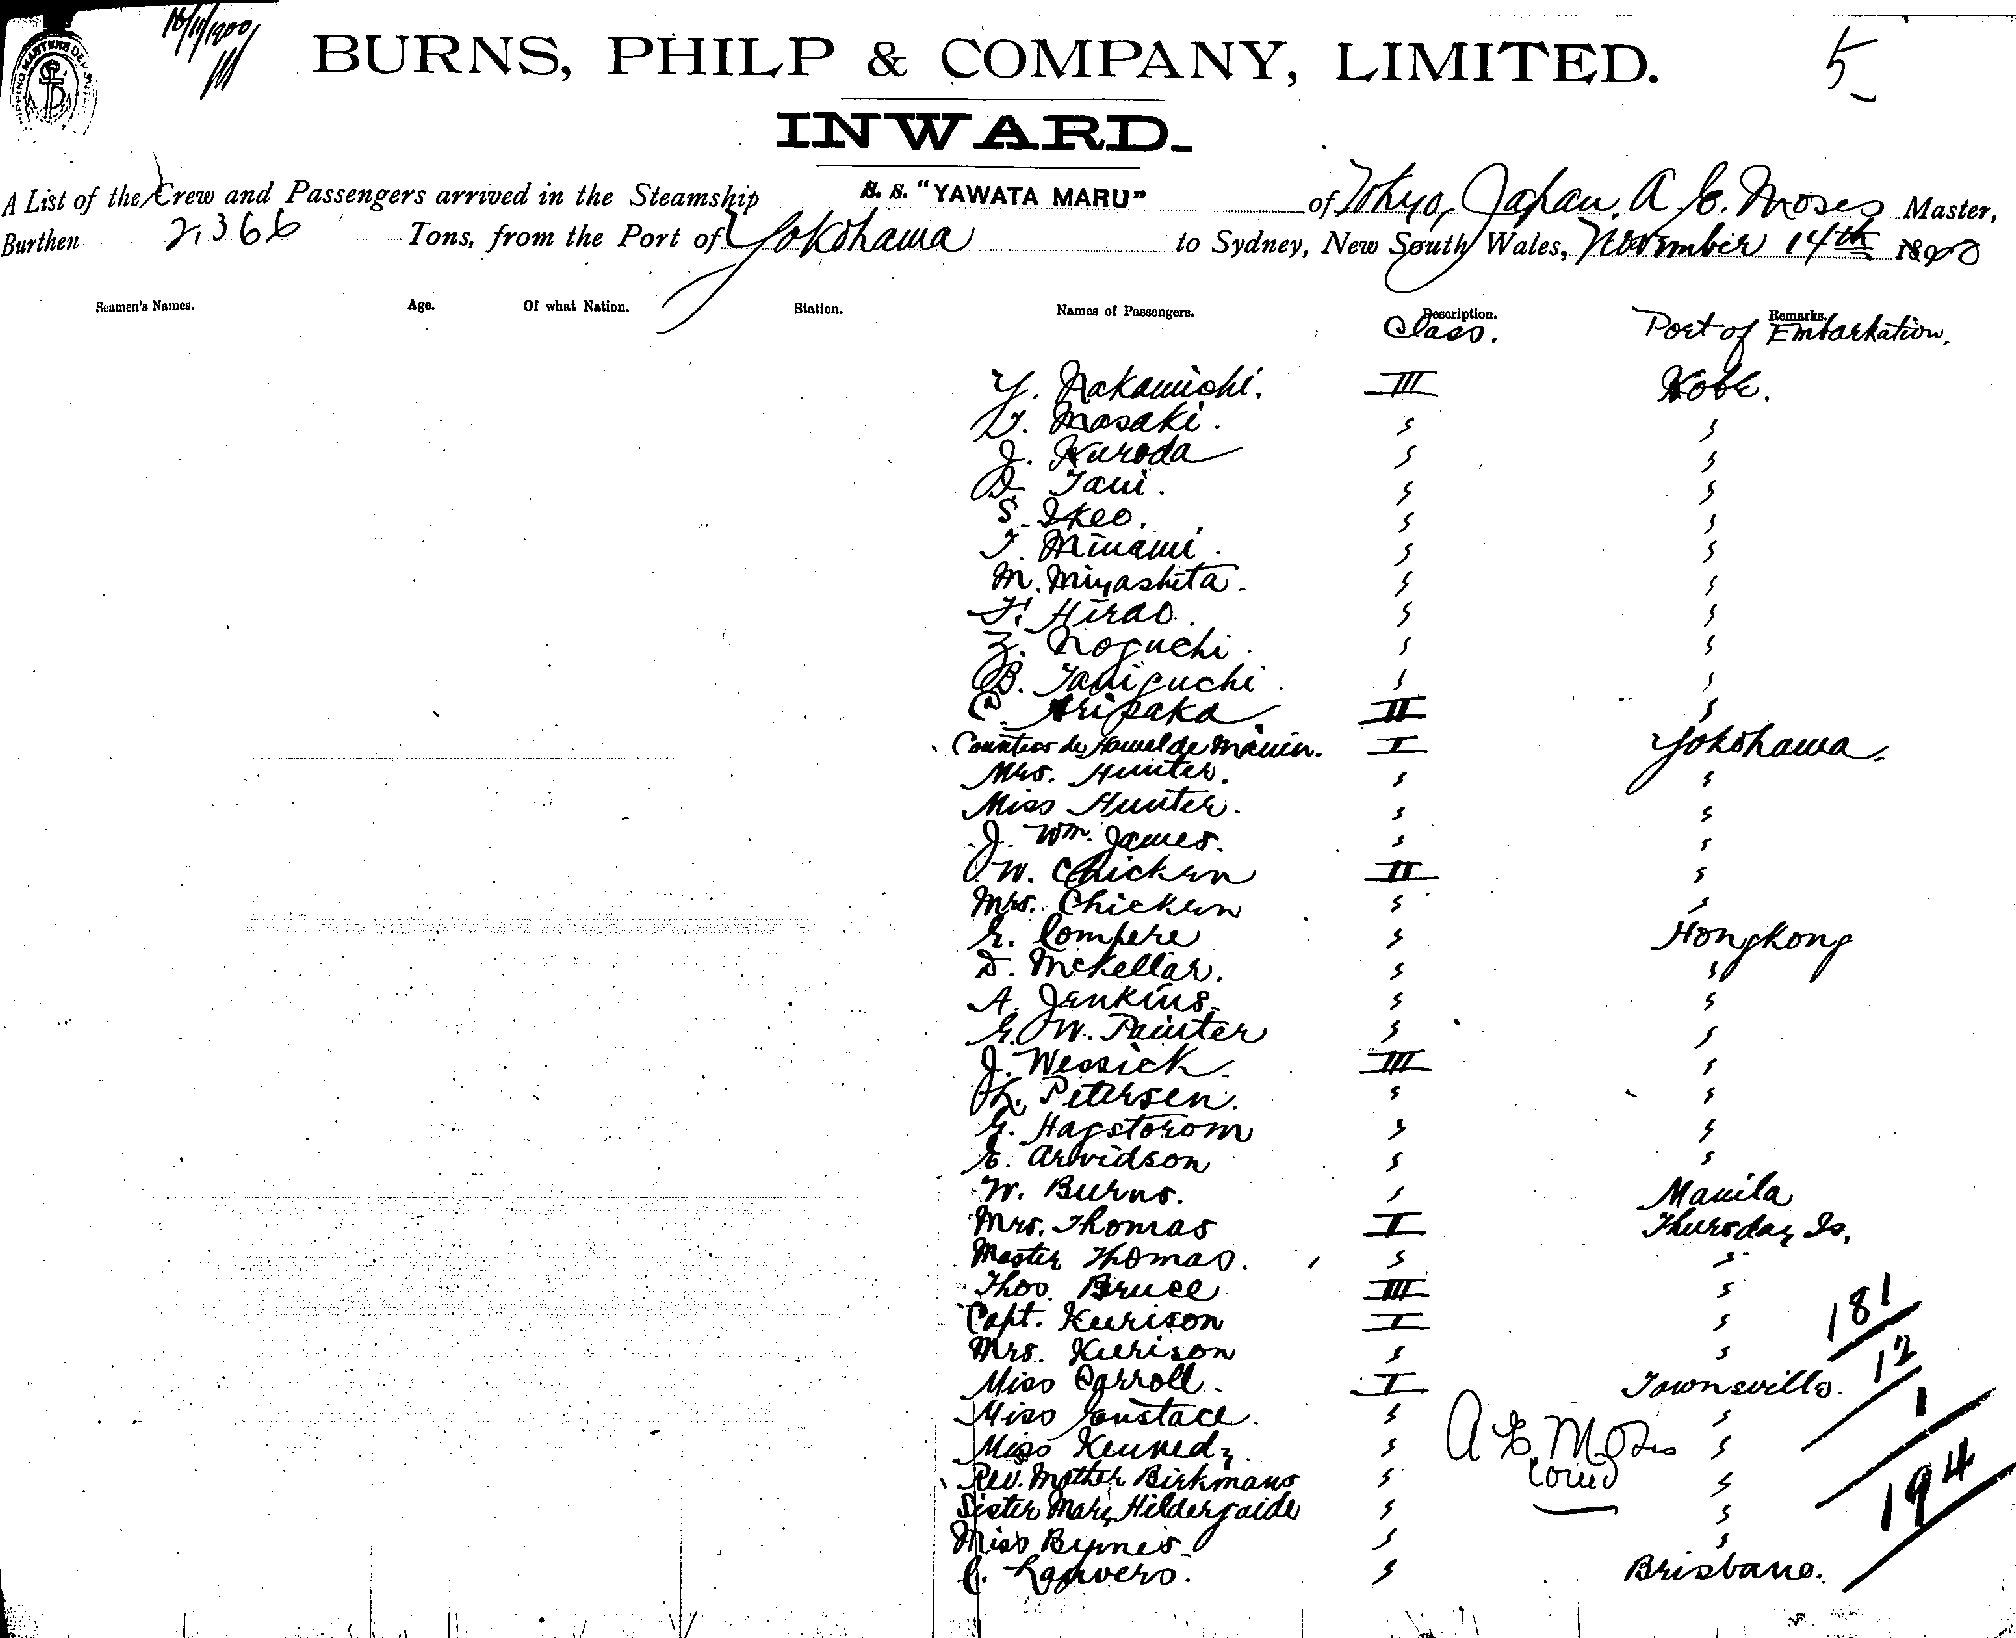 16/11/1900
BURNS, PHILP & COMPANY, LIMITED.
5
INWARD.
A List of the Crew and Passengers arrived in the Steamship S. S. "YAWATA MARU" of Tokyo, Japan, A E. Moses Master,
Burthen 2,366 Tons, from the Port of Yokohama to Sydney, New South Wales, November 14th 1900
Seamen's Names. Age. Of what Nation. Station. Names of Passengers. Description. Remarks.
Class. Port of Embarkation.
Y. Nakamichi. III Kobe.
Masaki. " "
J. Kuroda " "
Tani. " "
S. Ikeo. " "
T. Minami. " "
M. Miyashita. " "
F. Hirao. " "
Z. Noguchi. " "
B. Taniguchi. " "
C. Arisaka II "
Countess de I Yokohama.
Mrs. Hunter. " "
Miss Hunter. " "
J. Wm. James. " "
W. Chicken II "
Mrs. Chicken " "
G. Compere " Hongkong
D. McKellar. " "
A. Jenkins. " "
G. W. Painter " "
J. Wessick. III "
K. Petersen. " "
G. Hagstorom " "
E. Arvidson " "
W. Burns. " Manila
Mrs. Thomas I Thursday Is.
Master Thomas. " "
Thos. Bruce III "
Capt. Keirison I "
Mrs. Keirison " "
Miss Carroll. I Townsville.
Miss Eustace. " "
Miss Kennedy " "
Rev. Mother Birkmans " "
Sister Mary Hildergaide " "
Miss Byrnes " "
C. " Brisbane.
A E. Moses
181
12
1
194